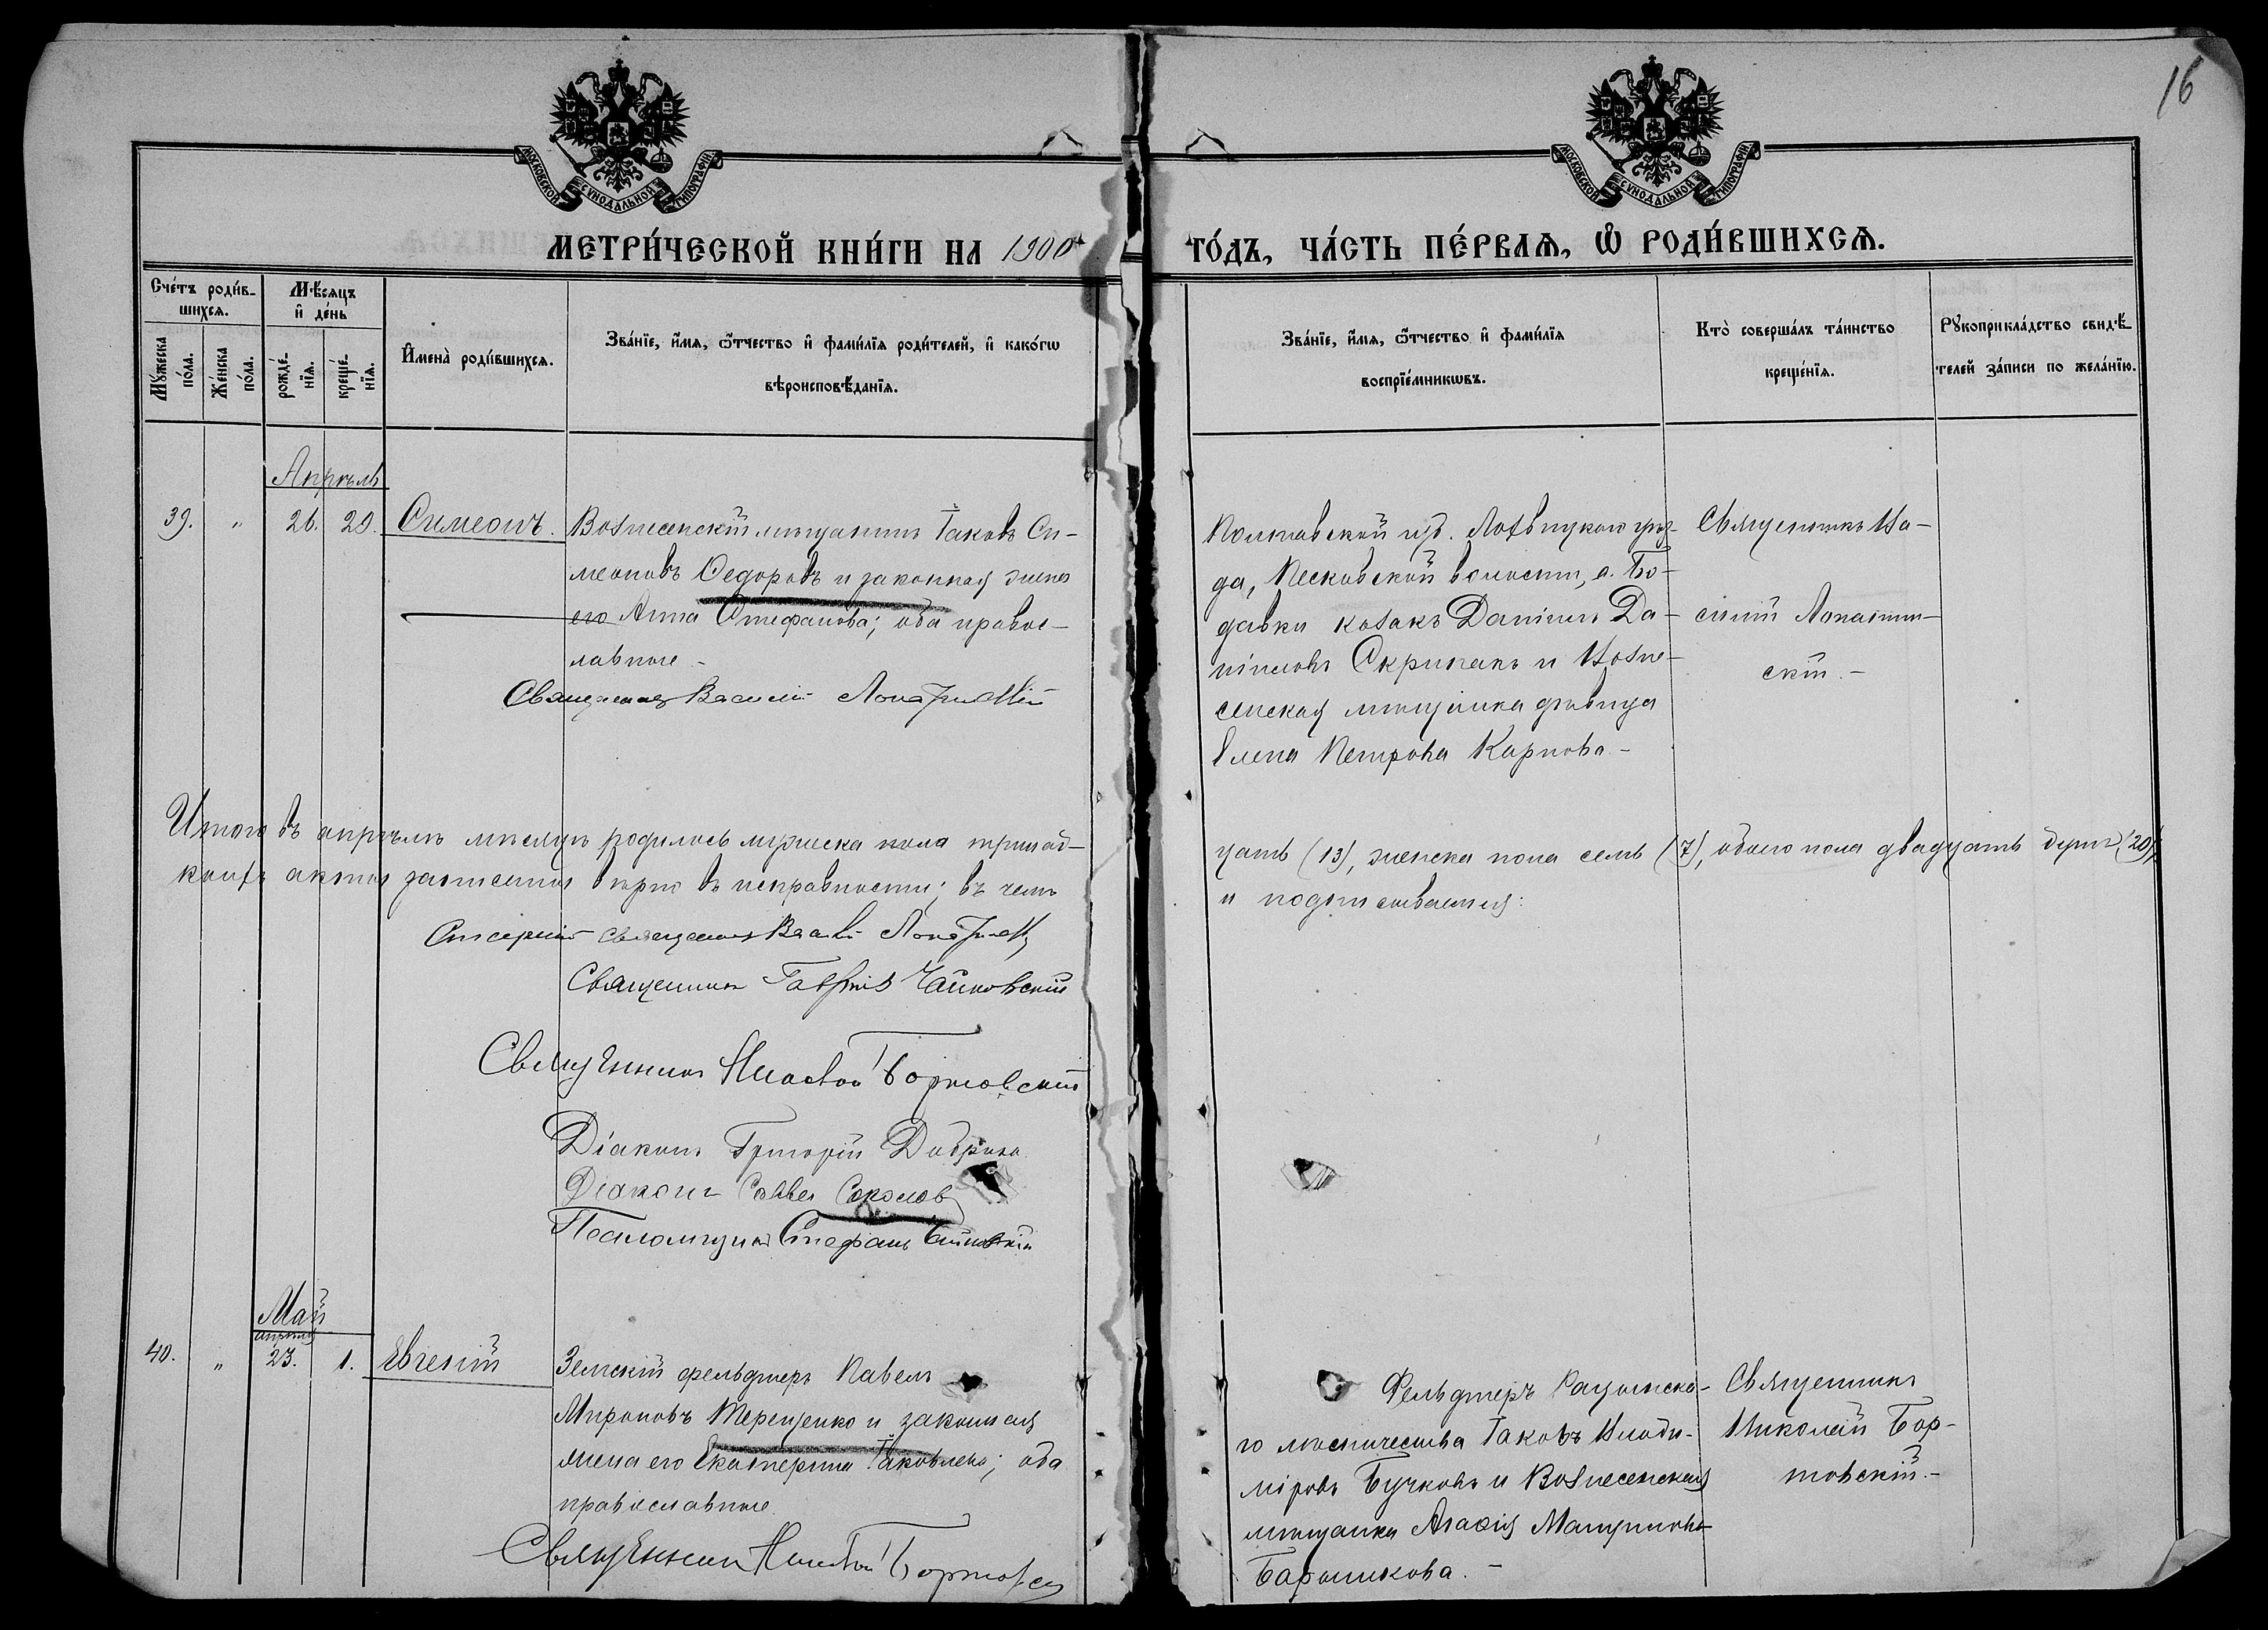 16
МОСКОВСКОЙ СУНОДАЛЬНОЙ ТИПОГРАФІИ
МОСКОВСКОЙ СУНОДАЛЬНОЙ ТИПОГРАФІИ
МЕТРИ́ЧЕСКОЙ КНИ́ГИ НА 1900
ГО́ДЪ, ЧА́СТЬ ПЕ́РВАѦ, Ѿ РОДИ́ВШИХСѦ.
Сче́тъ роди́в-
шихсѧ.
Мꙋ́жеска
по́ла.
Же́нска
по́ла.
Мѣ́сѧцъ
и҆ де́нь
рожде́-
нїѧ.
креще́-
нїѧ.
И҆мена̀ роди́вшихсѧ.
Зва́нїе, и҆́мѧ, ѻ҆́тчество и҆ фами́лїѧ роди́телей, и҆ како́гѡ
вѣроисповѣ́данїѧ.
Зва́нїе, и҆́мѧ, ѻ҆́тчество и҆ фами́лїѧ
воспрїе́мникѡвъ.
Кто̀ соверша́лъ та́инство
креще́нїѧ.
Рꙋкоприкла́дство свидѣ́-
телей за́писи по жела́нїю.
Апрѣль
39. " 26. 29. Симеонъ.
Вознесенскій мѣщанинъ Іаковъ Си-
меоновъ Седоровъ и законная жена
его Анна Стефанова; оба правос-
лавные -
Священникъ Василій Лопатинскій
Полтавской губ. Лохвицкаго уѣз-
да, Песковской волости, с. Бо-
давки козакъ Даніилъ Да-
ніиловъ Скрипакъ и Возне-
сенская мѣщанка дѣвица
Елена Петрова Карпова -
Священникъ Ва-
силій Лопатин-
скій. -
Итого въ апрѣлѣ мѣсяцѣ родилось мужеска пола тринад-
цать (13), женска пола семь (7), обоего пола двадцать душъ (20),
коихъ актовъ записанія вѣрно въ исправности; въ чемъ
и подписываемся:
священникъ Василій Лопатинскій
Священникъ Гавріилъ Чайковскій
Священникъ Николай Бортовскій
Діаконъ Григорій
Діаконъ Савва Соколов
Псаломщикъ Стефанъ
Май
апрѣля
40. " 23. 1. Евгеній
Земскій фельдшеръ Павелъ
Мироновъ Терещенко и законная
жена его Екатерина Іаковлева; оба
православные.
Священникъ Николай Бортовск
Фельдшеръ Рацынска-
го лѣсничества Іаковъ Влади-
міровъ Бучковъ и Вознесенская
мѣщанка Агафія
Барышкова. -
Священникъ
Николай Бор-
товскій. -